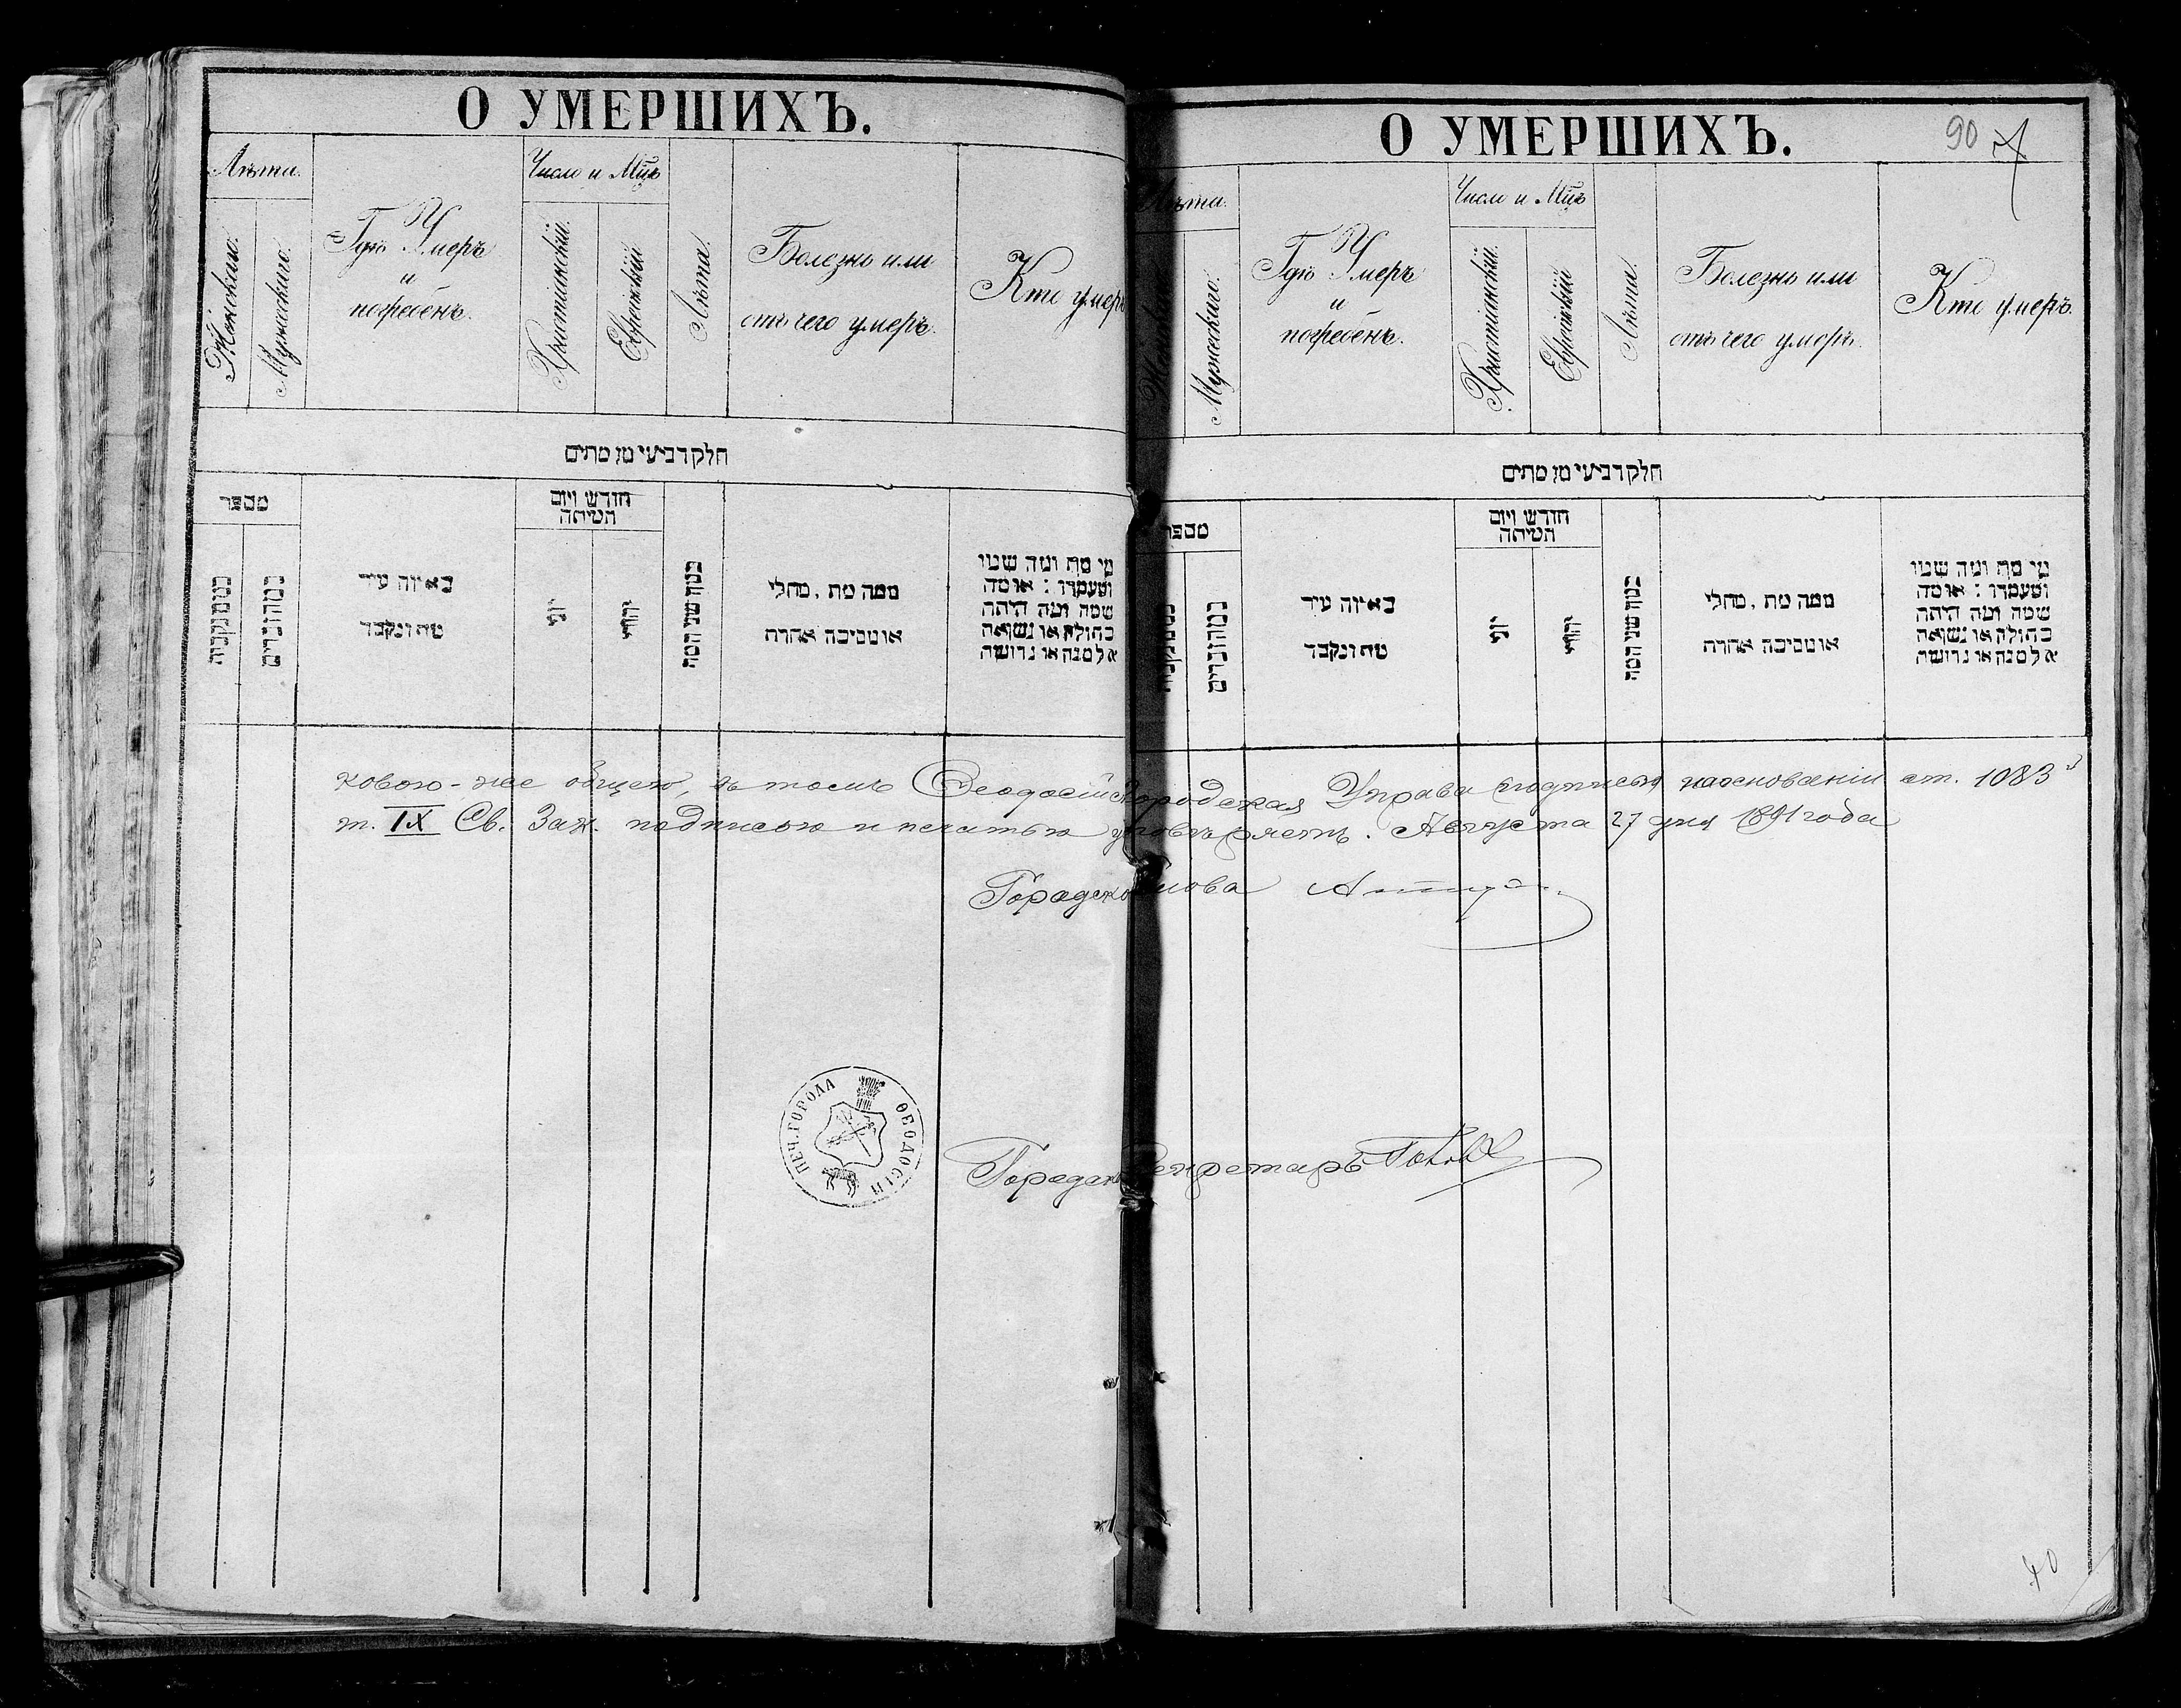 О УМЕРШИХЪ.
Лѣта.
Женскаго.
Мужескаго.
Гдѣ Умеръ
и
погребенъ.
Число и Мцъ
Христіанскій.
Еврейскій
Лѣта.
Болезнь или
отъ чего умеръ.
Кто умеръ
חלק רביעי מן מתים
מספר
כמה נקבות
כמה זכרים
באיזה עיר
מת ונקבר
חודש ויום
המיתה
יוני
יהודי
כמה שני המת
ממה מת, מחלי
או מסיבה אחרת
מי מת ומה שמו
ומעמדו : או מה
שמה ומה היתה
בתולה או נשואה
אלמנה או גרושה
О УМЕРШИХЪ.
90
Лѣта.
Мужескаго.
Гдѣ Умеръ
и
погребенъ.
Число и Мцъ
Христіанскій.
Еврейскій
Лѣта.
Болезнь или
отъ чего умеръ.
Кто умеръ.
חלק רביעי מן מתים
מספר
כמה זכרים
באיזה עיר
מת ונקבר
חודש ויום
המיתה
יוני
יהודי
כמה שני המת
ממה מת, מחלי
או מסיבה אחרת
מי מת ומה שמו
ומעמדו : או מה
שמה ומה היתה
בתולה או נשואה
אלמנה או גרושה
ковою-же общею, въ томъ Феодосійс Городская Управа подписью на основаніи ст. 1083
т. IX Св. Зак. подписью и печатью удовѣряетъ. Августа 27 дня 1891 года
Городской Голова
ПЕЧ. ГОРОДА ѲЕОДОСІИ
Городск Секретарь
40